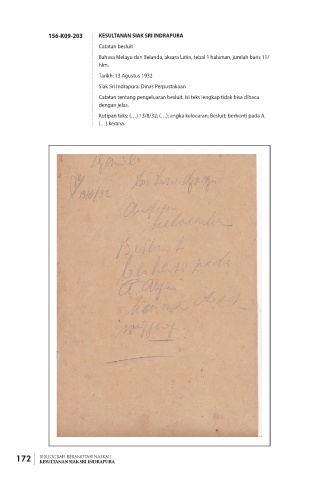 156-K09-203
KESULTANAN SIAK SRI INDRAPURA
Catatan besluit
Bahasa Melayu dan Belanda, aksara Latin, tebal 1 halaman, jumlah baris 11/
hlm.
Tarikh: 13 Agustus 1932
Siak Sri Indrapura: Dinas Perpustakaan
Catatan tentang pengeluaran besluit. Isi teks lengkap tidak bisa dibaca
dengan jelas.
Kutipan teks: (…) 13/8/32; (…); angka keloearan; Besluit; berhenti pada A.
(…) karena.
13/8/32
Angka
keloearan
Besluit
berhenti pada
A.
karena
172
BIBLIOGRAFI BERANOTASI NASKAH
KESULTANAN SIAK SRI INDRAPURA